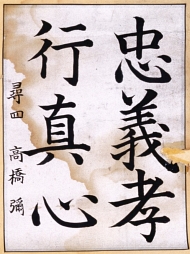 忠義孝
行真心
尋四 高橋 彌